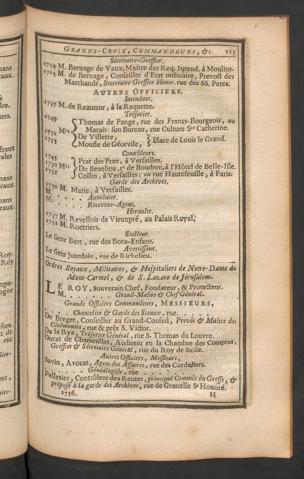 GRANDS-CROIX, COMMANDEURS, &c. 215
Sécretaire-Greffier.
1754 M. Bernage de Vaux, Maître des Req. Intend. à Moulins.
1724 M. de Bernage, Conseiller d'Etat ordinaire, Prevost des
Marchands, Secretaire Greffier Honor. rue des SS. Peres.
AUTRES OFFICIERS.
Intendant.
1757 M. de Reaumur, à la Raquette.
Trésorier.
1749 Thomas de Pange, rue des Francs-Bourgeois, au
Marais: son Bureau, rue Culture Ste Catherine.
1750 Mrs De Villette,
1752 Mouffe de Géorville, Place de Louis le Grand.
Controlleurs.
1745 Prat des Prez, à Versailles.
1750 Mrs De Beaulieu, r. de Bourbon, à l'Hôtel de Belle-Isle.
1752 Collin, à Versailles: ou rue Hautefeuille, à Paris.
Garde des Archives,
1750 M. Marie, à Versailles.
Aumônier.
M. . . . .
Receveur-Agent,
M. . . . .
Heraults.
1717 M. Revellois de Vieuxpré, au Palais Royal,
M. Roettiers.
Scelleur.
Le sieur Bert, rue des Bons-Enfans.
Avertisseur.
Le sieur Jourdain, rue de Richelieu.
Ordres Royaux, Militaires, & Hospitaliers de Notre-Dame du
Mont-Carmel, & de S. Lazare de Jérusalem.
LE ROY, Souverain Chef, Fondateur, & Protecteur.
M. . . . . Grand-Maître & Chef Général.
Grands Officiers Commandeurs, MESSIEURS,
. . . . . Chancelier & Garde des Sceaux, rue . . . .
De Breget, Conseiller au Grand-Conseil, Prevôt & Maître des
Cérémonies, rue & près S. Victor.
De la Rye, Trésorier Général, rue S. Thomas du Louvre.
Dorat de Chameulles, Auditeur en la Chambre des Comptes,
Greffier & Sécretaire Général, rue du Roy de Sicile.
Autres Officiers, Messieurs,
Bavin, Avocat, Agent des Affaires, rue des Cordeliers.
. . . . . Généalogiste, rue . . . .
Pelletier, Contrôleur des Rentes, principal Commis du Greffe, &
préposé à la garde des Archives, rue de Grenelle St Honoré.
1756. H